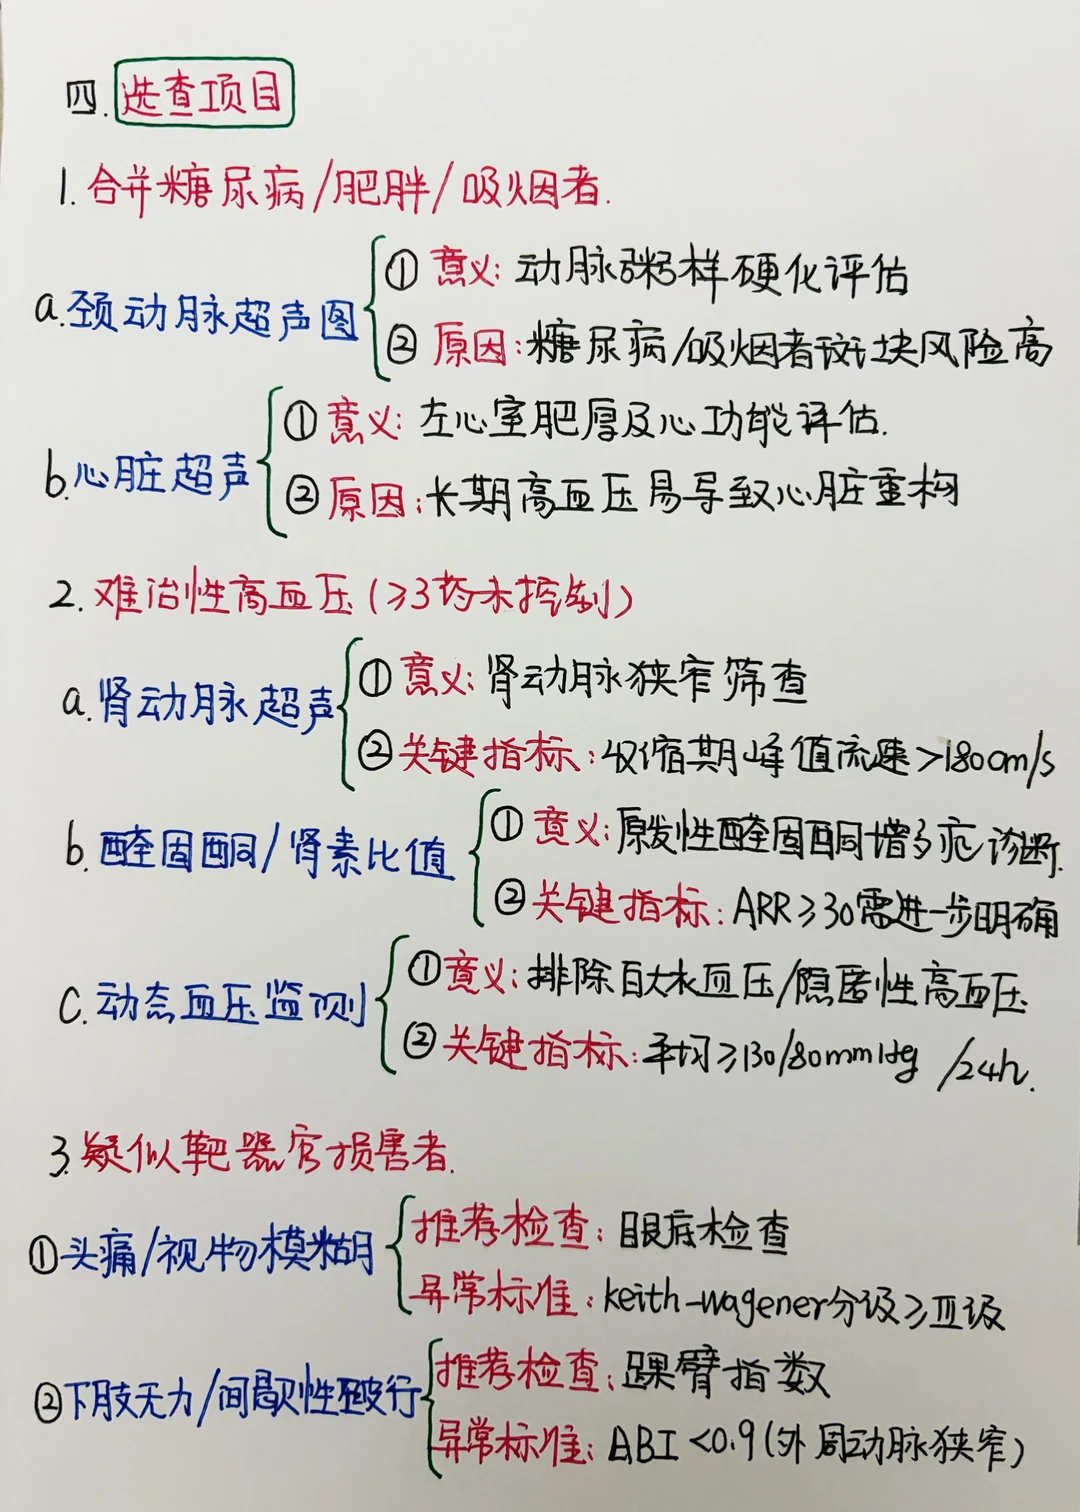 四.选查项目
1.合并糖尿病/肥胖/吸烟者.
a.颈动脉超声图
①意义:动脉粥样硬化评估
②原因:糖尿病/吸烟者斑块风险高
b.心脏超声
①意义:左心室肥厚及心功能评估.
②原因:长期高血压易导致心脏重构
2.难治性高血压(≥3药未控制)
a.肾动脉超声
①意义:肾动脉狭窄筛查
②关键指标:收缩期峰值流速>180cm/s
b.醛固酮/肾素比值
①意义:原发性醛固酮增多症诊断.
②关键指标:ARR≥30需进一步明确
C.动态血压监测
①意义:排除白大衣血压/隐匿性高血压
②关键指标:平均≥130/80mmHg /24h.
3.疑似靶器官损害者.
①头痛/视物模糊
推荐检查:眼底检查
异常标准:keith-wagener分级≥Ⅲ级
②下肢无力/间歇性跛行
推荐检查:踝臂指数
异常标准:ABI<0.9(外周动脉狭窄)